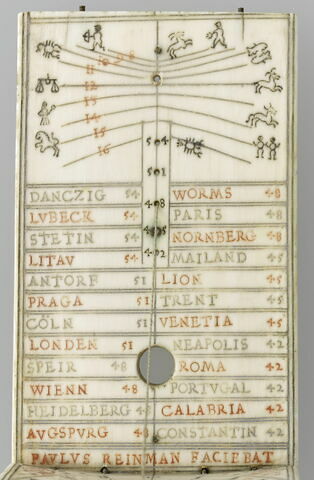 11 10 9 8
12
13
14
15
16
54
51
48
45
42
DANCZIG 54 WORMS 48
LVBECK 54 PARIS 48
STETIN 54 NORNBERG 48
LITAV 54 MAILAND 45
ANTORF 51 LION 45
PRAGA 51 TRENT 45
CÖLN 51 VENETIA 45
LONDEN 51 NEAPOLIS 42
SPEIR 48 ROMA 42
WIENN 48 PORTVGAL 42
HEIDELBERG 48 CALABRIA 42
AVGSPVRG 48 CONSTANTIN 42
PAVLVS REINMAN FACIEBAT